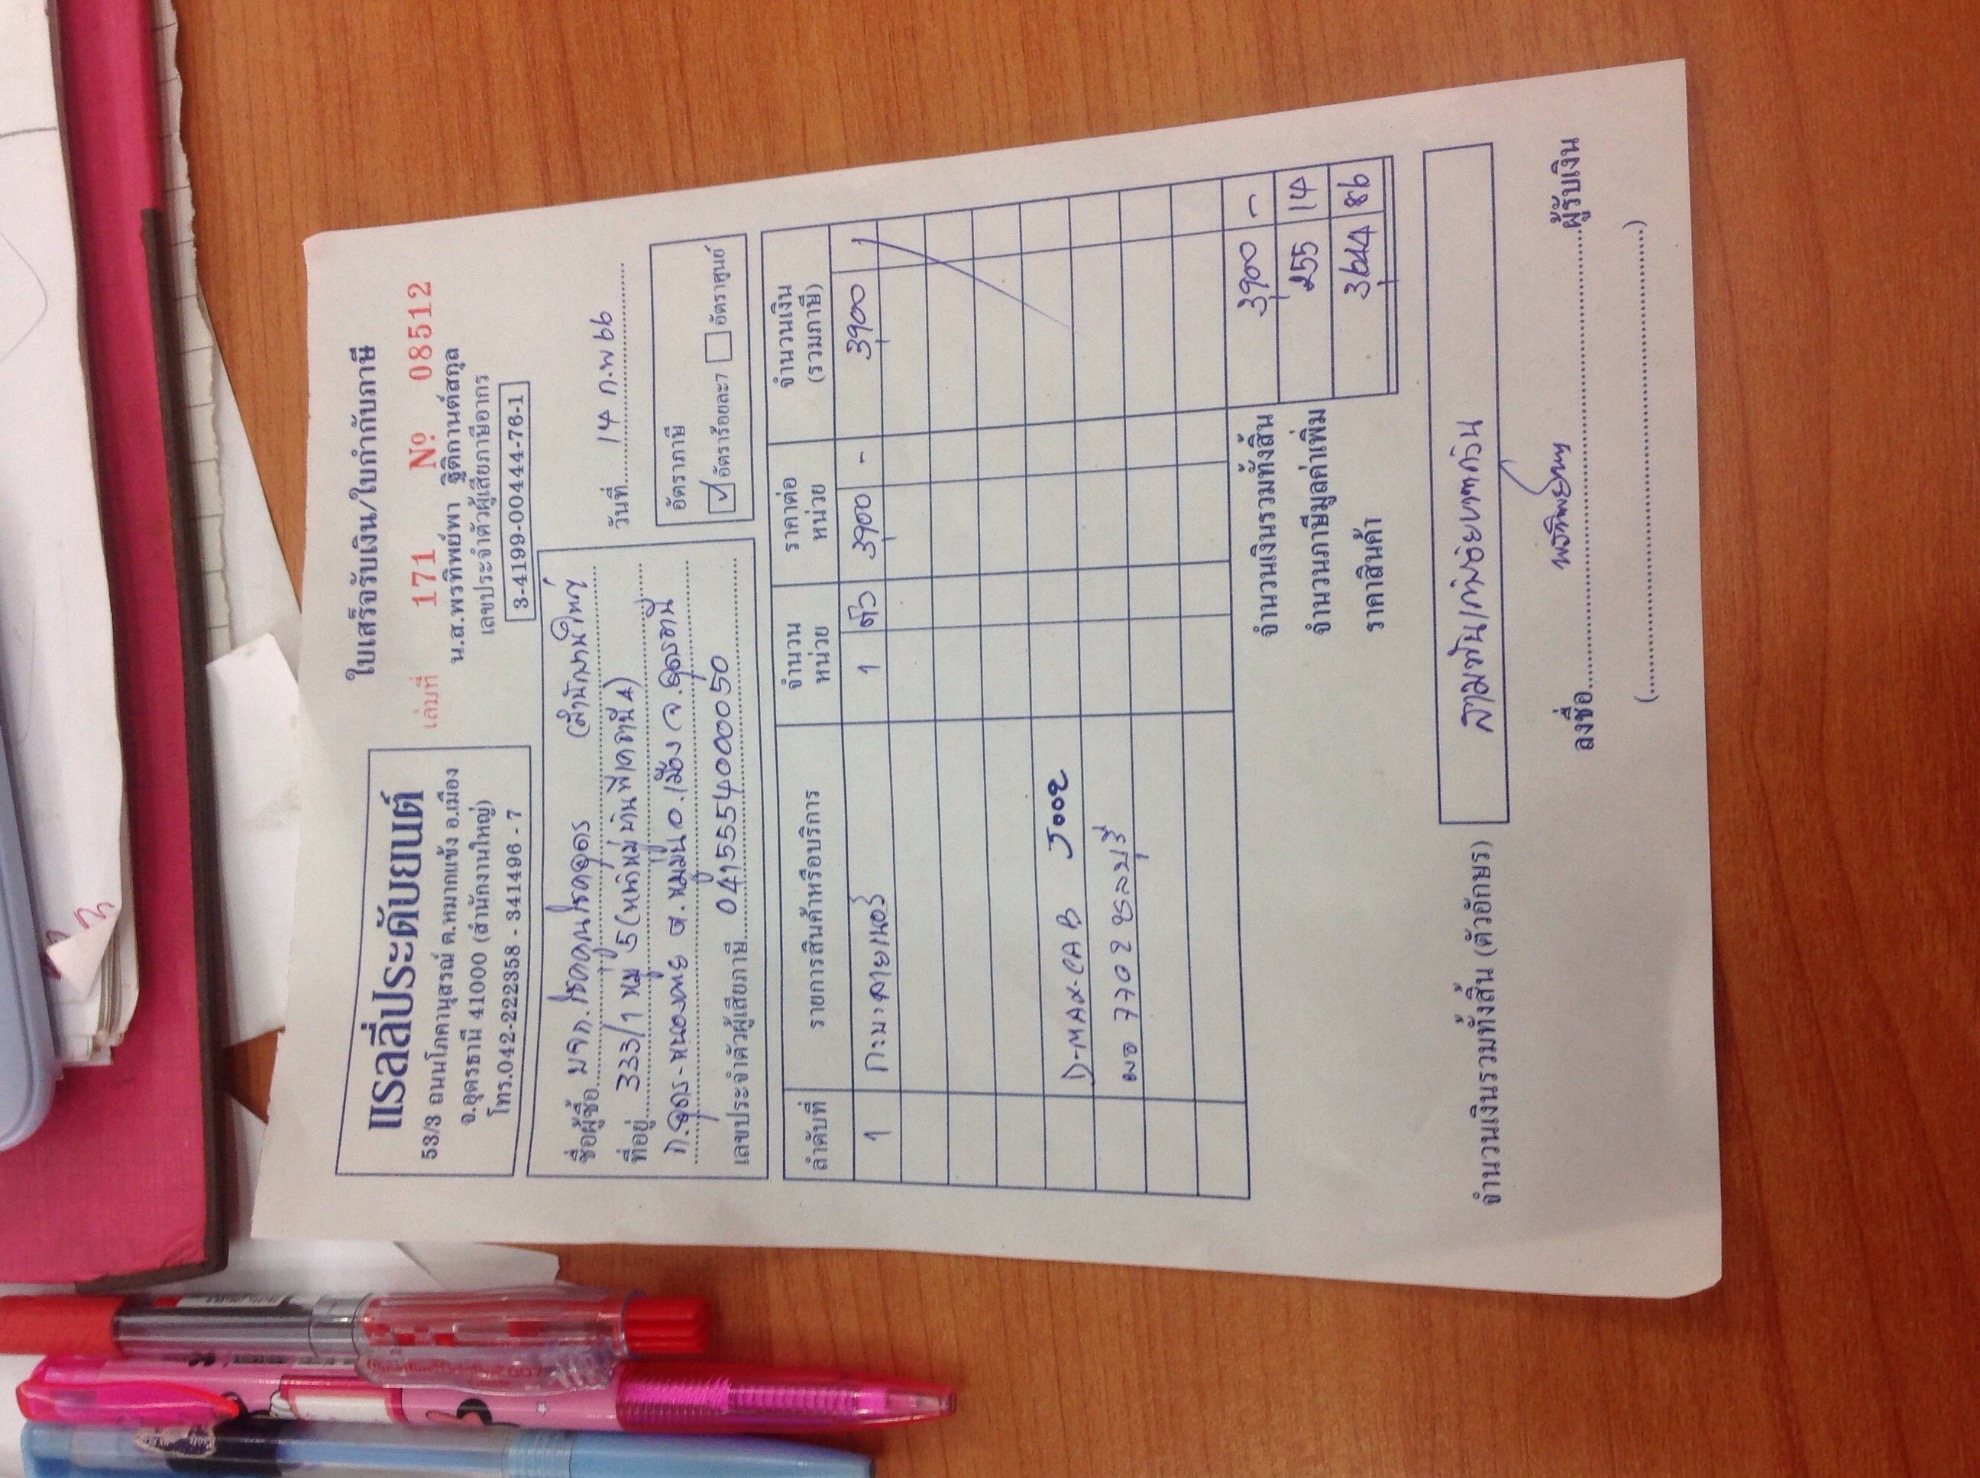 แรลลี่ประดับยนต์
53/3 ถนนโภคานุสรณ์ ต.หมากแข้ง อ.เมือง
จ.อุดรธานี 41000 (สำนักงานใหญ่)
โทร.042-222358 - 341496 - 7
ใบเสร็จรับเงิน/ใบกำกับภาษี
เล่มที่ 171 № 08512
น.ส.พรทิพย์พา ฐิติกานต์สกุล
เลขประจำตัวผู้เสียภาษีอากร
3-4199-00444-76-1
ชื่อผู้ซื้อ หจก.โชคคูณโชคอุดร (สำนักงานใหญ่)
ที่อยู่ 333/1 หมู่ 5 (หน้าหมู่บ้านพี่เคธานี 4)
ถ.อุดร-หนองคาย ต.หมูม่น อ.เมือง จ.อุดรธานี
เลขประจำตัวผู้เสียภาษี 0415554000050
วันที่ 14 ก.พ 66
อัตราภาษี
อัตราร้อยละ7 อัตราศูนย์
ลำดับที่ รายการสินค้าหรือบริการ จำนวนหน่วย ราคาต่อหน่วย จำนวนเงิน (รวมภาษี)
1 กะบะลายเนอร์ 1 ตัว 3900 - 3900
D-MAX-CAB 2002
ผอ 7702 ชลบุรี
จำนวนเงินรวมทั้งสิ้น 3900 -
จำนวนภาษีมูลค่าเพิ่ม 255 14
ราคาสินค้า 3644 86
จำนวนเงินรวมทั้งสิ้น (ตัวอักษร) สามพันเก้าร้อยบาทถ้วน
ลงชื่อ ผู้รับเงิน